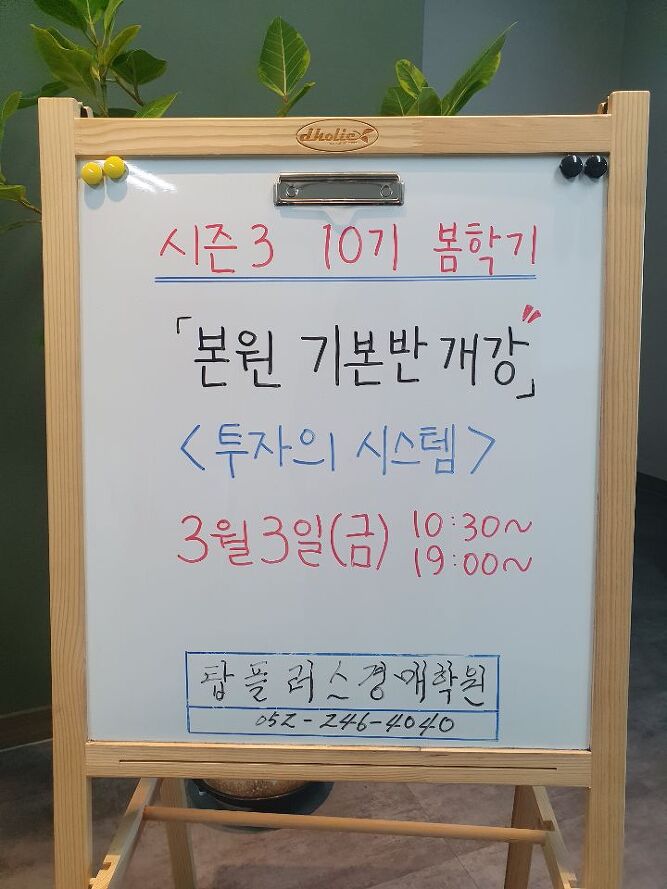 dholic
시즌3 10기 봄학기
「본원 기본반 개강」
<투자의 시스템>
3월 3일(금) 10:30~
19:00~
탑플러스경매학원
052-246-4040